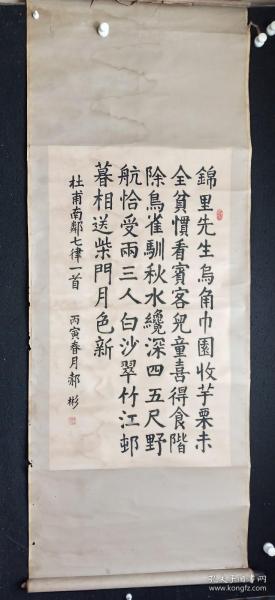 錦里先生烏角巾園收芋栗未
全貧慣看賓客兒童喜得食階
除鳥雀馴秋水纔深四五尺野
航恰受兩三人白沙翠竹江邨
暮相送柴門月色新
杜甫南鄰七律一首 丙寅春月郝彬
孔夫子旧书网
kongfz.com